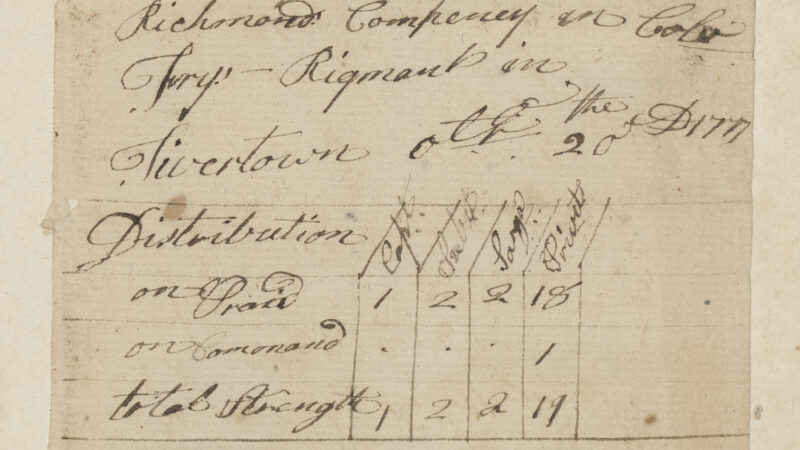 Richmond Compeney in Colo
Frys Rigmant in
Tivertown Octr the 20 D 1777
Distribution Capt. Sublt Sarg. Privets
on Praid 1 2 2 18
on Comonand . . . 1
total Strength 1 2 2 19